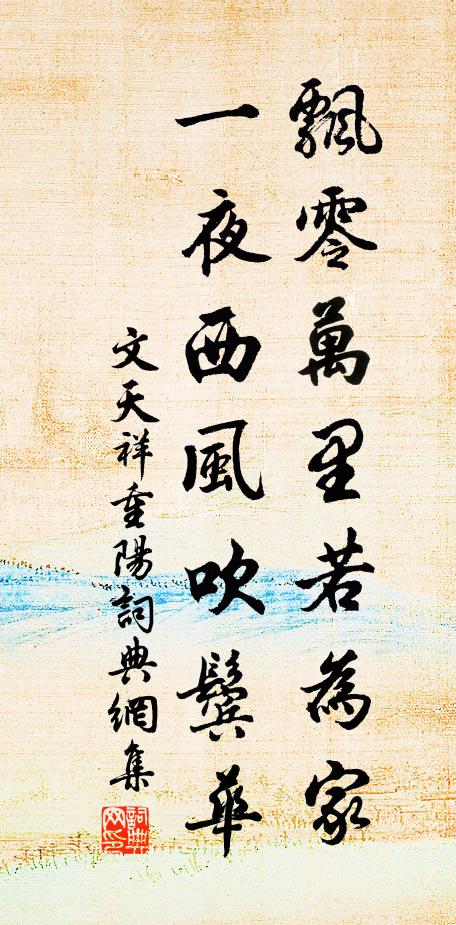 飄零萬里若為家
一夜西風吹鬢華
文天祥重陽詞典網集
詞典網印